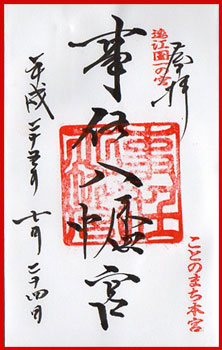 奉拝
遠江国一の宮
ことのまち本宮
事任八幡宮
平成二十五年十月二十四日